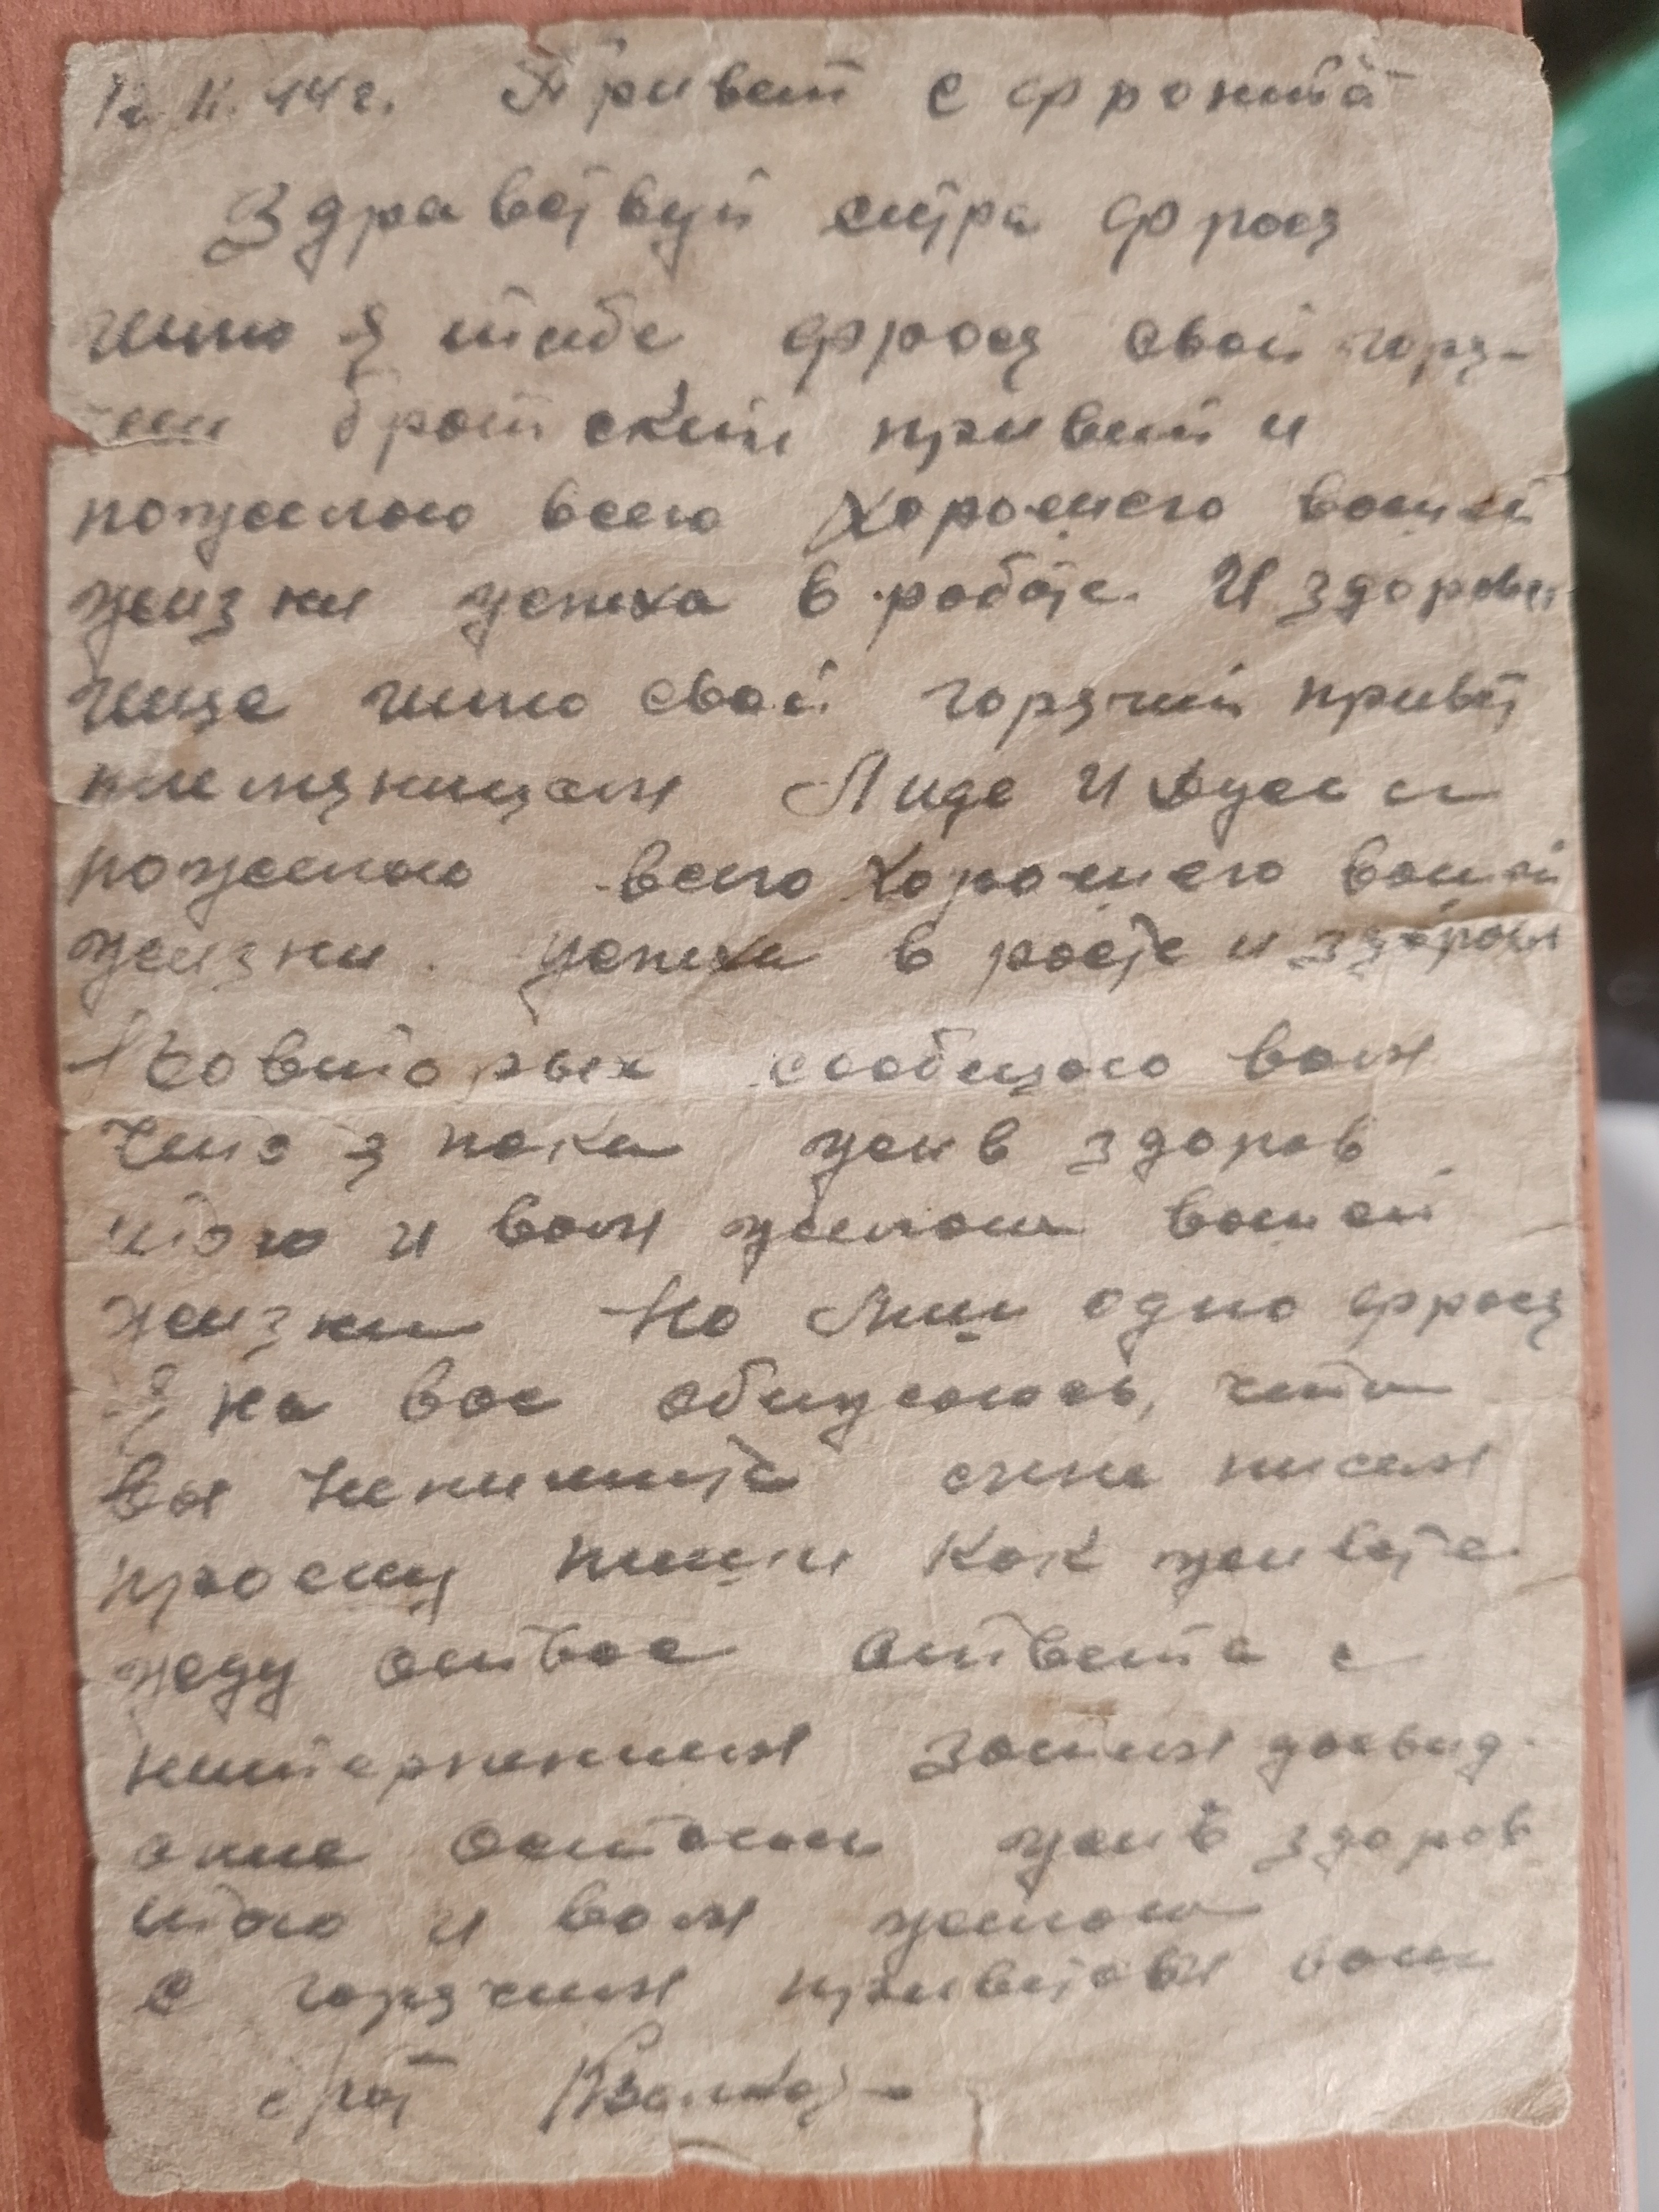 12.II.44г. Привет с фронта
Здравствуй систра Фрося
шлю я тибе Фрося свой горя-
чий братский привет и
пожелаю всего хорошего вашей
жизни успеха в работе. И здоровя
ище шлю свой горячий привет
племяницам Лиде И Дуси и
пожелаю всего хорошего вашей
жизни. успеха в росте и здоровя
Новторых сообщаю вам
что я пока жив здоров
чтого и вам желаю вашей
жизни Но Лиш одно Фрося
Я на вас обижаюсь, что
вы непишите мне писем
прошу пиши как живете
жду отвас ответа с
нитерпением затем досвид-
ание остаюсь жив здоров
чтого и вам желаю
с горячим приветом ваш
брат